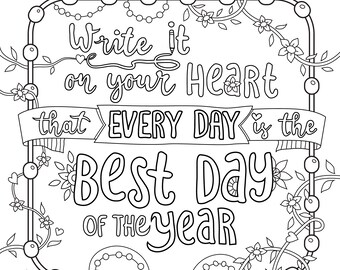 Write it
on your HEART
that EVERY DAY is the
BEST DAY
OF THE YEAR